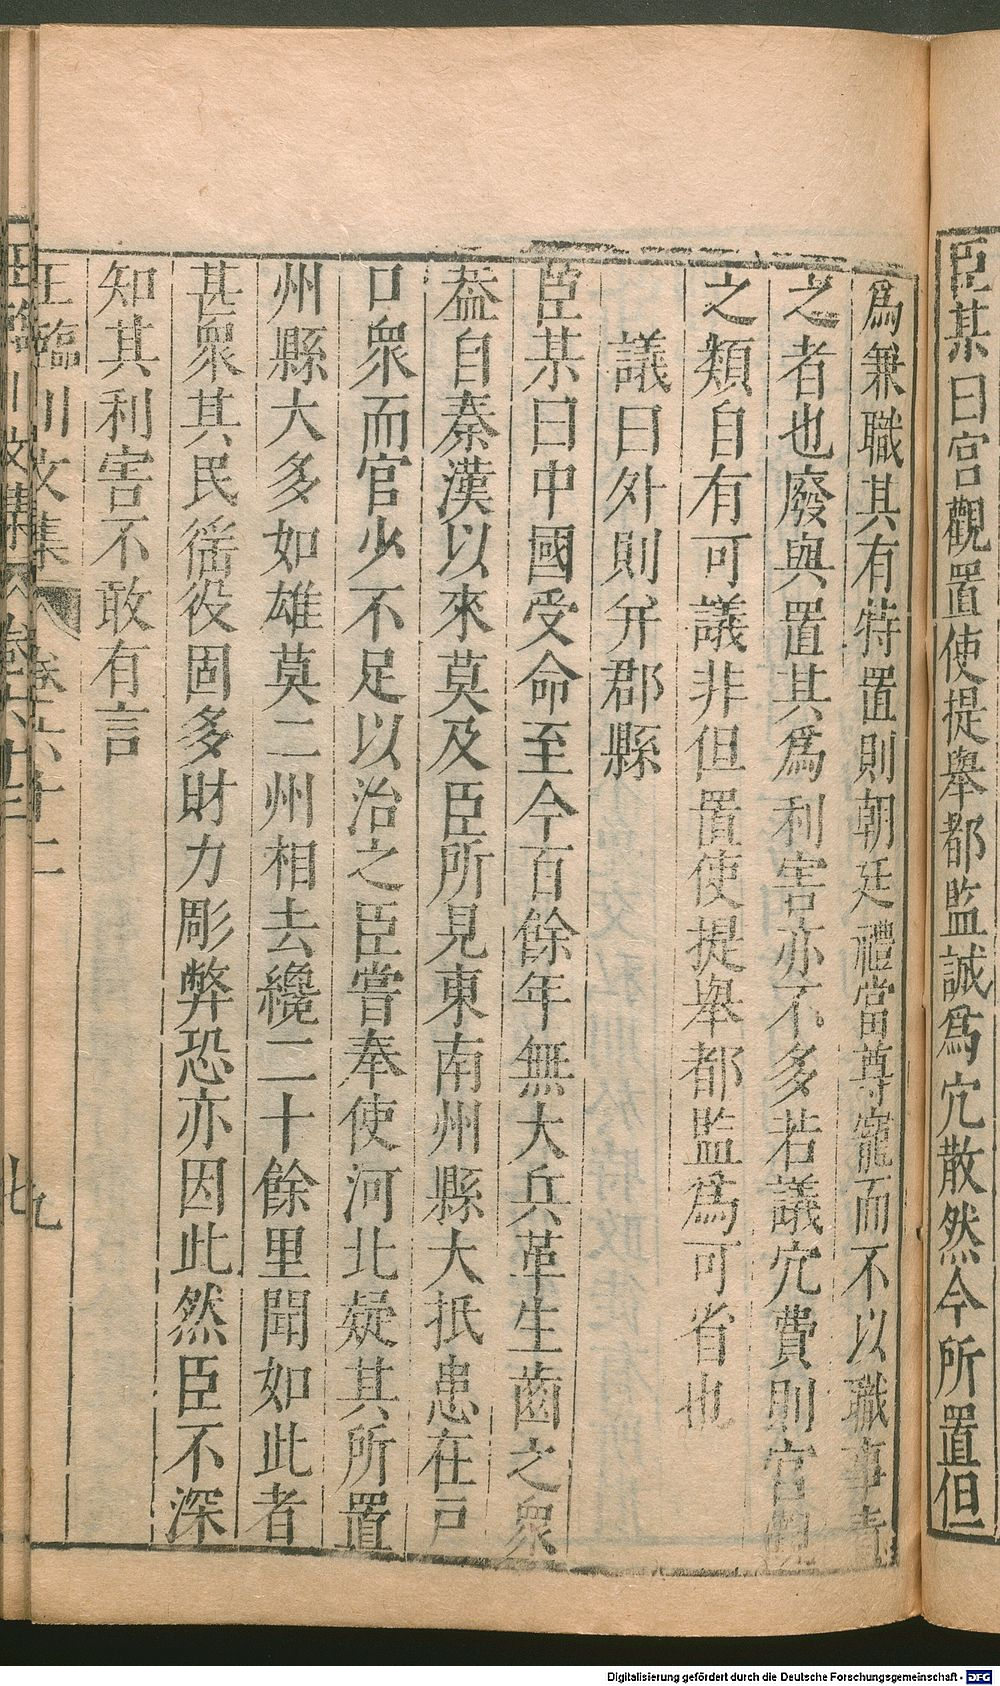 臣某曰宮觀置使提舉都監誠爲冗散然今所置但
爲兼職其有特置則朝廷禮當尊寵而不以職事責
之者也廢與置其爲利害亦不多若議冗費則官觀
之類自有可議非但置使提舉都監爲可省也
議曰外則并郡縣
臣某曰中國受命至今百餘年無大兵革生齒之衆
蓋自秦漢以來莫及臣所見東南州縣大抵患在戶
口衆而官少不足以治之臣嘗奉使河北疑其所置
州縣大多如雄莫二州相去纔二十餘里聞如此者
甚衆其民徭役固多財力彫弊恐亦因此然臣不深
知其利害不敢有言
王臨川文集 卷六十二 九
Digitalisierung gefördert durch die Deutsche Forschungsgemeinschaft - DFG